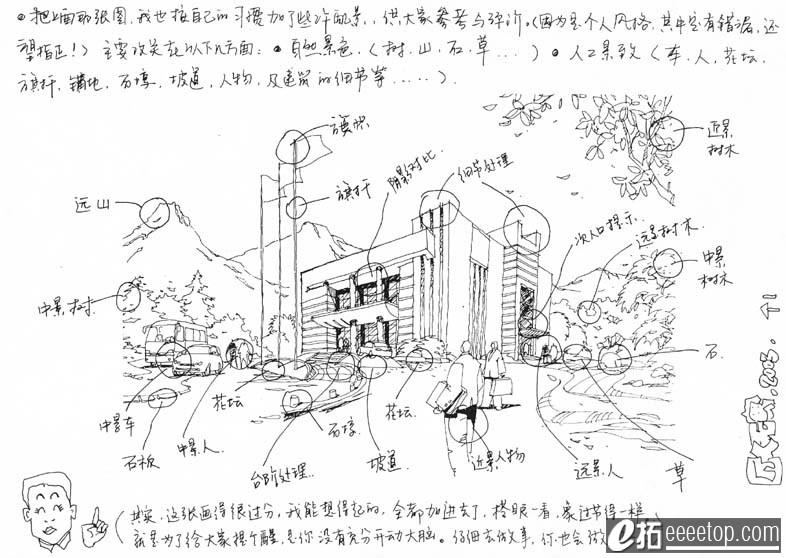 把上面那张图,我也按自己的习惯加了些许配景,供大家参考与评析。(因为是个人风格,其中定有错漏,还
望指正!)主要改关在以下几方面:•自然景色,(树.山,石,草...)•人工景致(车.人,花坛.
旗杆.铺地,石墩.坡道,人物,及建筑的细节等.....).
旗帜
近景
树木
阴影对比
细节处理
远山
旗杆
次入口提示.
远景树木.
中景
树木
中景.树.
石.
中景车
花坛
石墩.
花坛.
石板
中景.人
台阶处理..
坡道.
近景人物
远景.人
草
.2003.
(其实,这张画得很过分,我能想得起的,全都加进去了,搭眼一看,象过节得一样
就是为了给大家提个醒,是你没有充分开动大脑。仔细去做事,你也会做
e拓eeeetop.com